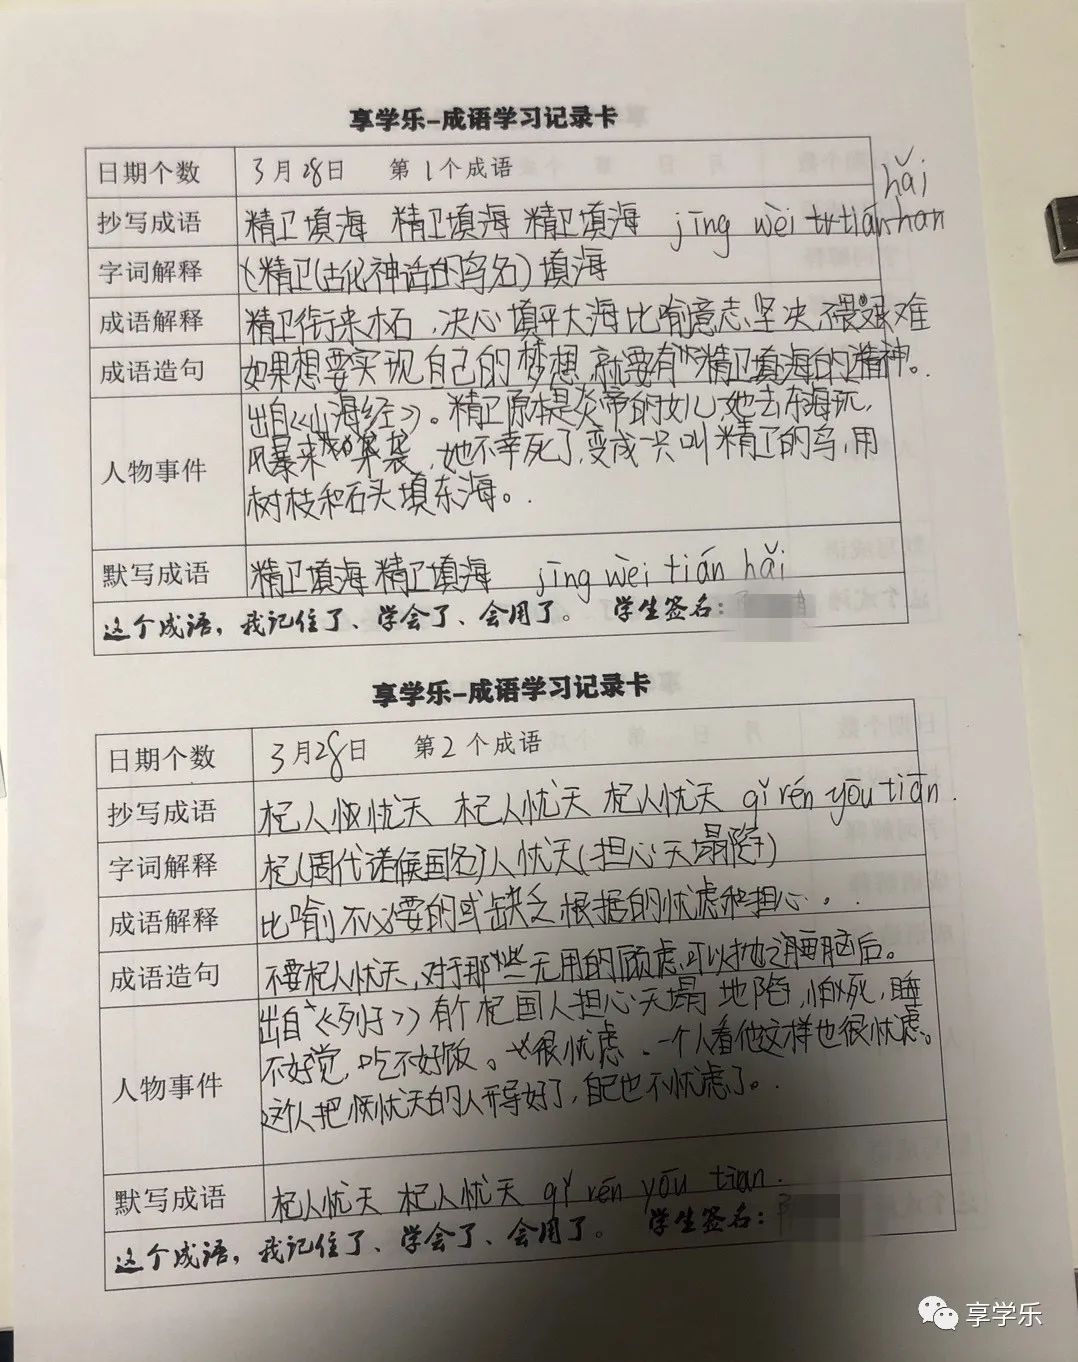 享学乐-成语学习记录卡
日期个数 3月28日 第1个成语
hǎi
抄写成语 精卫填海 精卫填海 精卫填海 jīng wèi tián han
字词解释 精卫(古代神话的鸟名)填海
成语解释 精卫衔来木石,决心填平大海比喻意志坚决,不畏艰难
成语造句 如果想要实现自己的梦想,就要有精卫填海的精神。
人物事件
出自《山海经》。精卫原本是炎帝的女儿,她去东海玩,
风暴来袭,她不幸死了,变成一只叫精卫的鸟,用
树枝和石头填东海。
默写成语 精卫填海 精卫填海 jīng wèi tián hǎi
这个成语,我记住了、学会了、会用了。 学生签名:
享学乐-成语学习记录卡
日期个数 3月28日 第2个成语
抄写成语 杞人忧天 杞人忧天 杞人忧天 qǐ rén yōu tiān.
字词解释 杞(周代诸候国名)人忧天(担心天塌陷)
成语解释 比喻不必要的或缺乏根据的忧虑和担心。
成语造句 不要杞人忧天,对于那些无用的顾虑,可以抛之脑后。
人物事件
出自《列子》有个杞国人担心天塌地陷,怕死,睡
不好觉,吃不好饭。很忧虑、一个人看他这样也很忧虑。
这人把忧天的人开导好了,自己也不忧虑了。
默写成语 杞人忧天 杞人忧天 qǐ rén yōu tian.
这个成语,我记住了、学会了、会用了。 学生签名:
享学乐